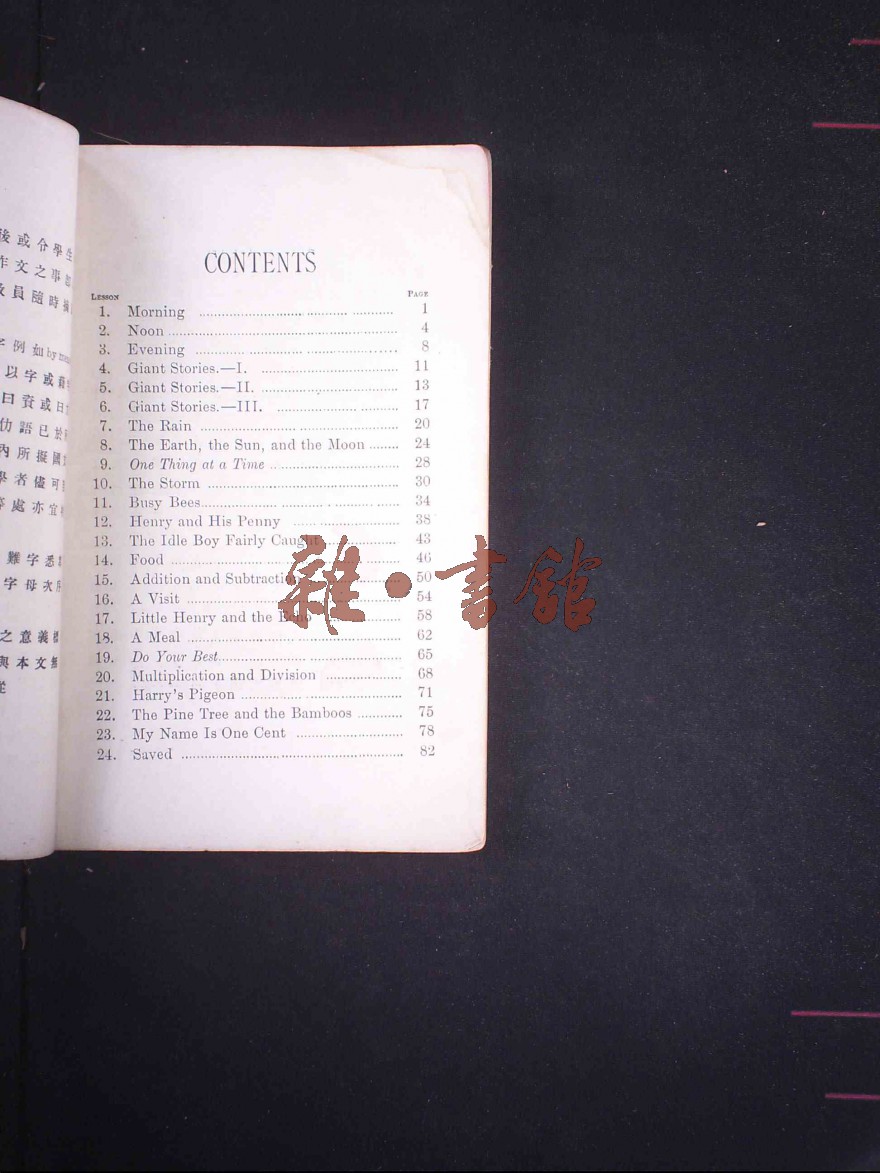 後或令學生
作文之事
教員隨時
字例如by
以字或
曰賚或日
仂語已於
內所擬國
學者儘可
等處亦宜
難字悉
字母次
之意義
與本文無
CONTENTS
LESSON PAGE
1. Morning 1
2. Noon 4
3. Evening 8
4. Giant Stories.—I. 11
5. Giant Stories.—II. 13
6. Giant Stories.—III. 17
7. The Rain 20
8. The Earth, the Sun, and the Moon 24
9. One Thing at a Time 28
10. The Storm 30
11. Busy Bees 34
12. Henry and His Penny 38
13. The Idle Boy Fairly Caught 43
14. Food 46
15. Addition and Subtraction 50
16. A Visit 54
17. Little Henry and the Echo 58
18. A Meal 62
19. Do Your Best 65
20. Multiplication and Division 68
21. Harry's Pigeon 71
22. The Pine Tree and the Bamboos 75
23. My Name Is One Cent 78
24. Saved 82
雜·書館